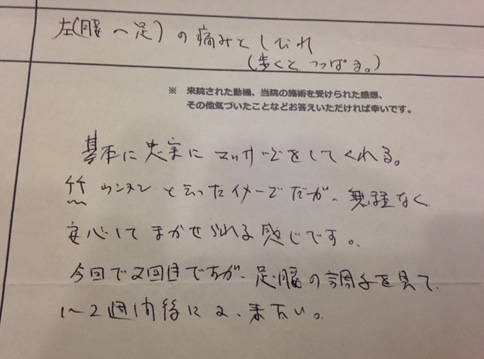 左(腰へ足)の痛みとしびれ
(歩くとつっぱる。)
※ 来院された動機、当院の施術を受けられた感想、
その他気づいたことなどお答えいただければ幸いです。
基本に忠実にマッサージをしてくれる。
竹 ウンヌンと言ったイメージだが、無理なく
安心してまかせられる感じです。
今回で2回目ですが、足、腰の調子を見て、
1〜2週間後に又、来たい。